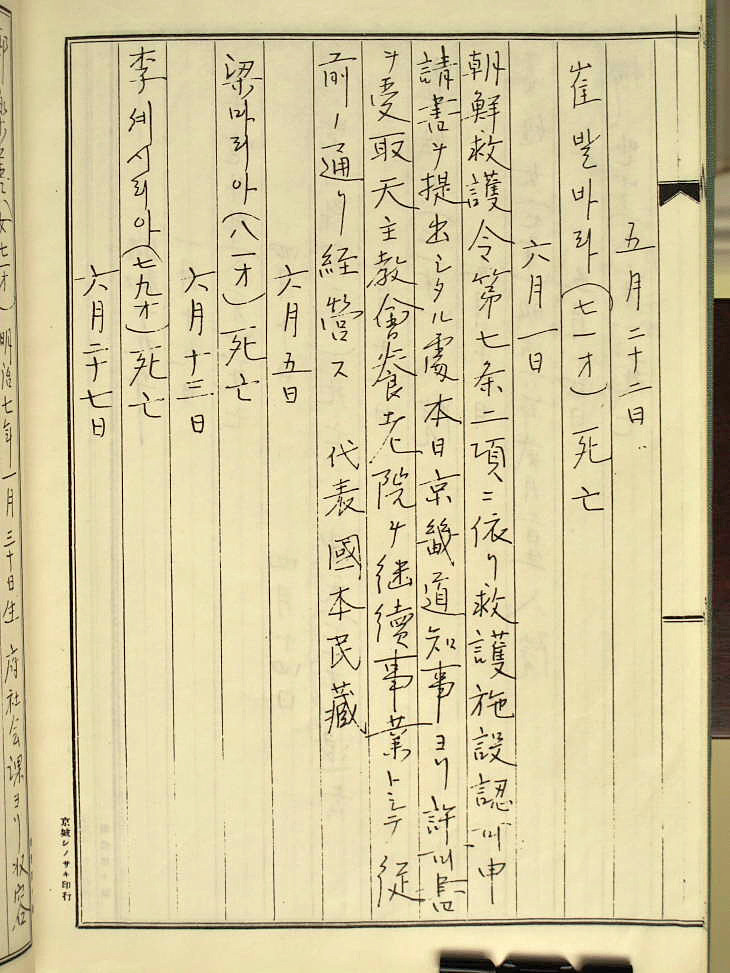 五月二十二日
崔발바라(七一才)死亡
六月一日
朝鮮救護令第七条二項ニ依リ救護施設認可申
請書ヲ提出シタル處本日京畿道知事ヨリ許可書
ヲ受取天主教會養老院ヲ継續事業トシテ従
前ノ通リ経営ス 代表國本民藏
六月五日
梁마리아(八一才)死亡
六月十三日
李세시리아(七九才)死亡
六月二十七日
(女七一才)明治七年一月三十日生 府社会課ヨリ収容
京城シノサキ印行